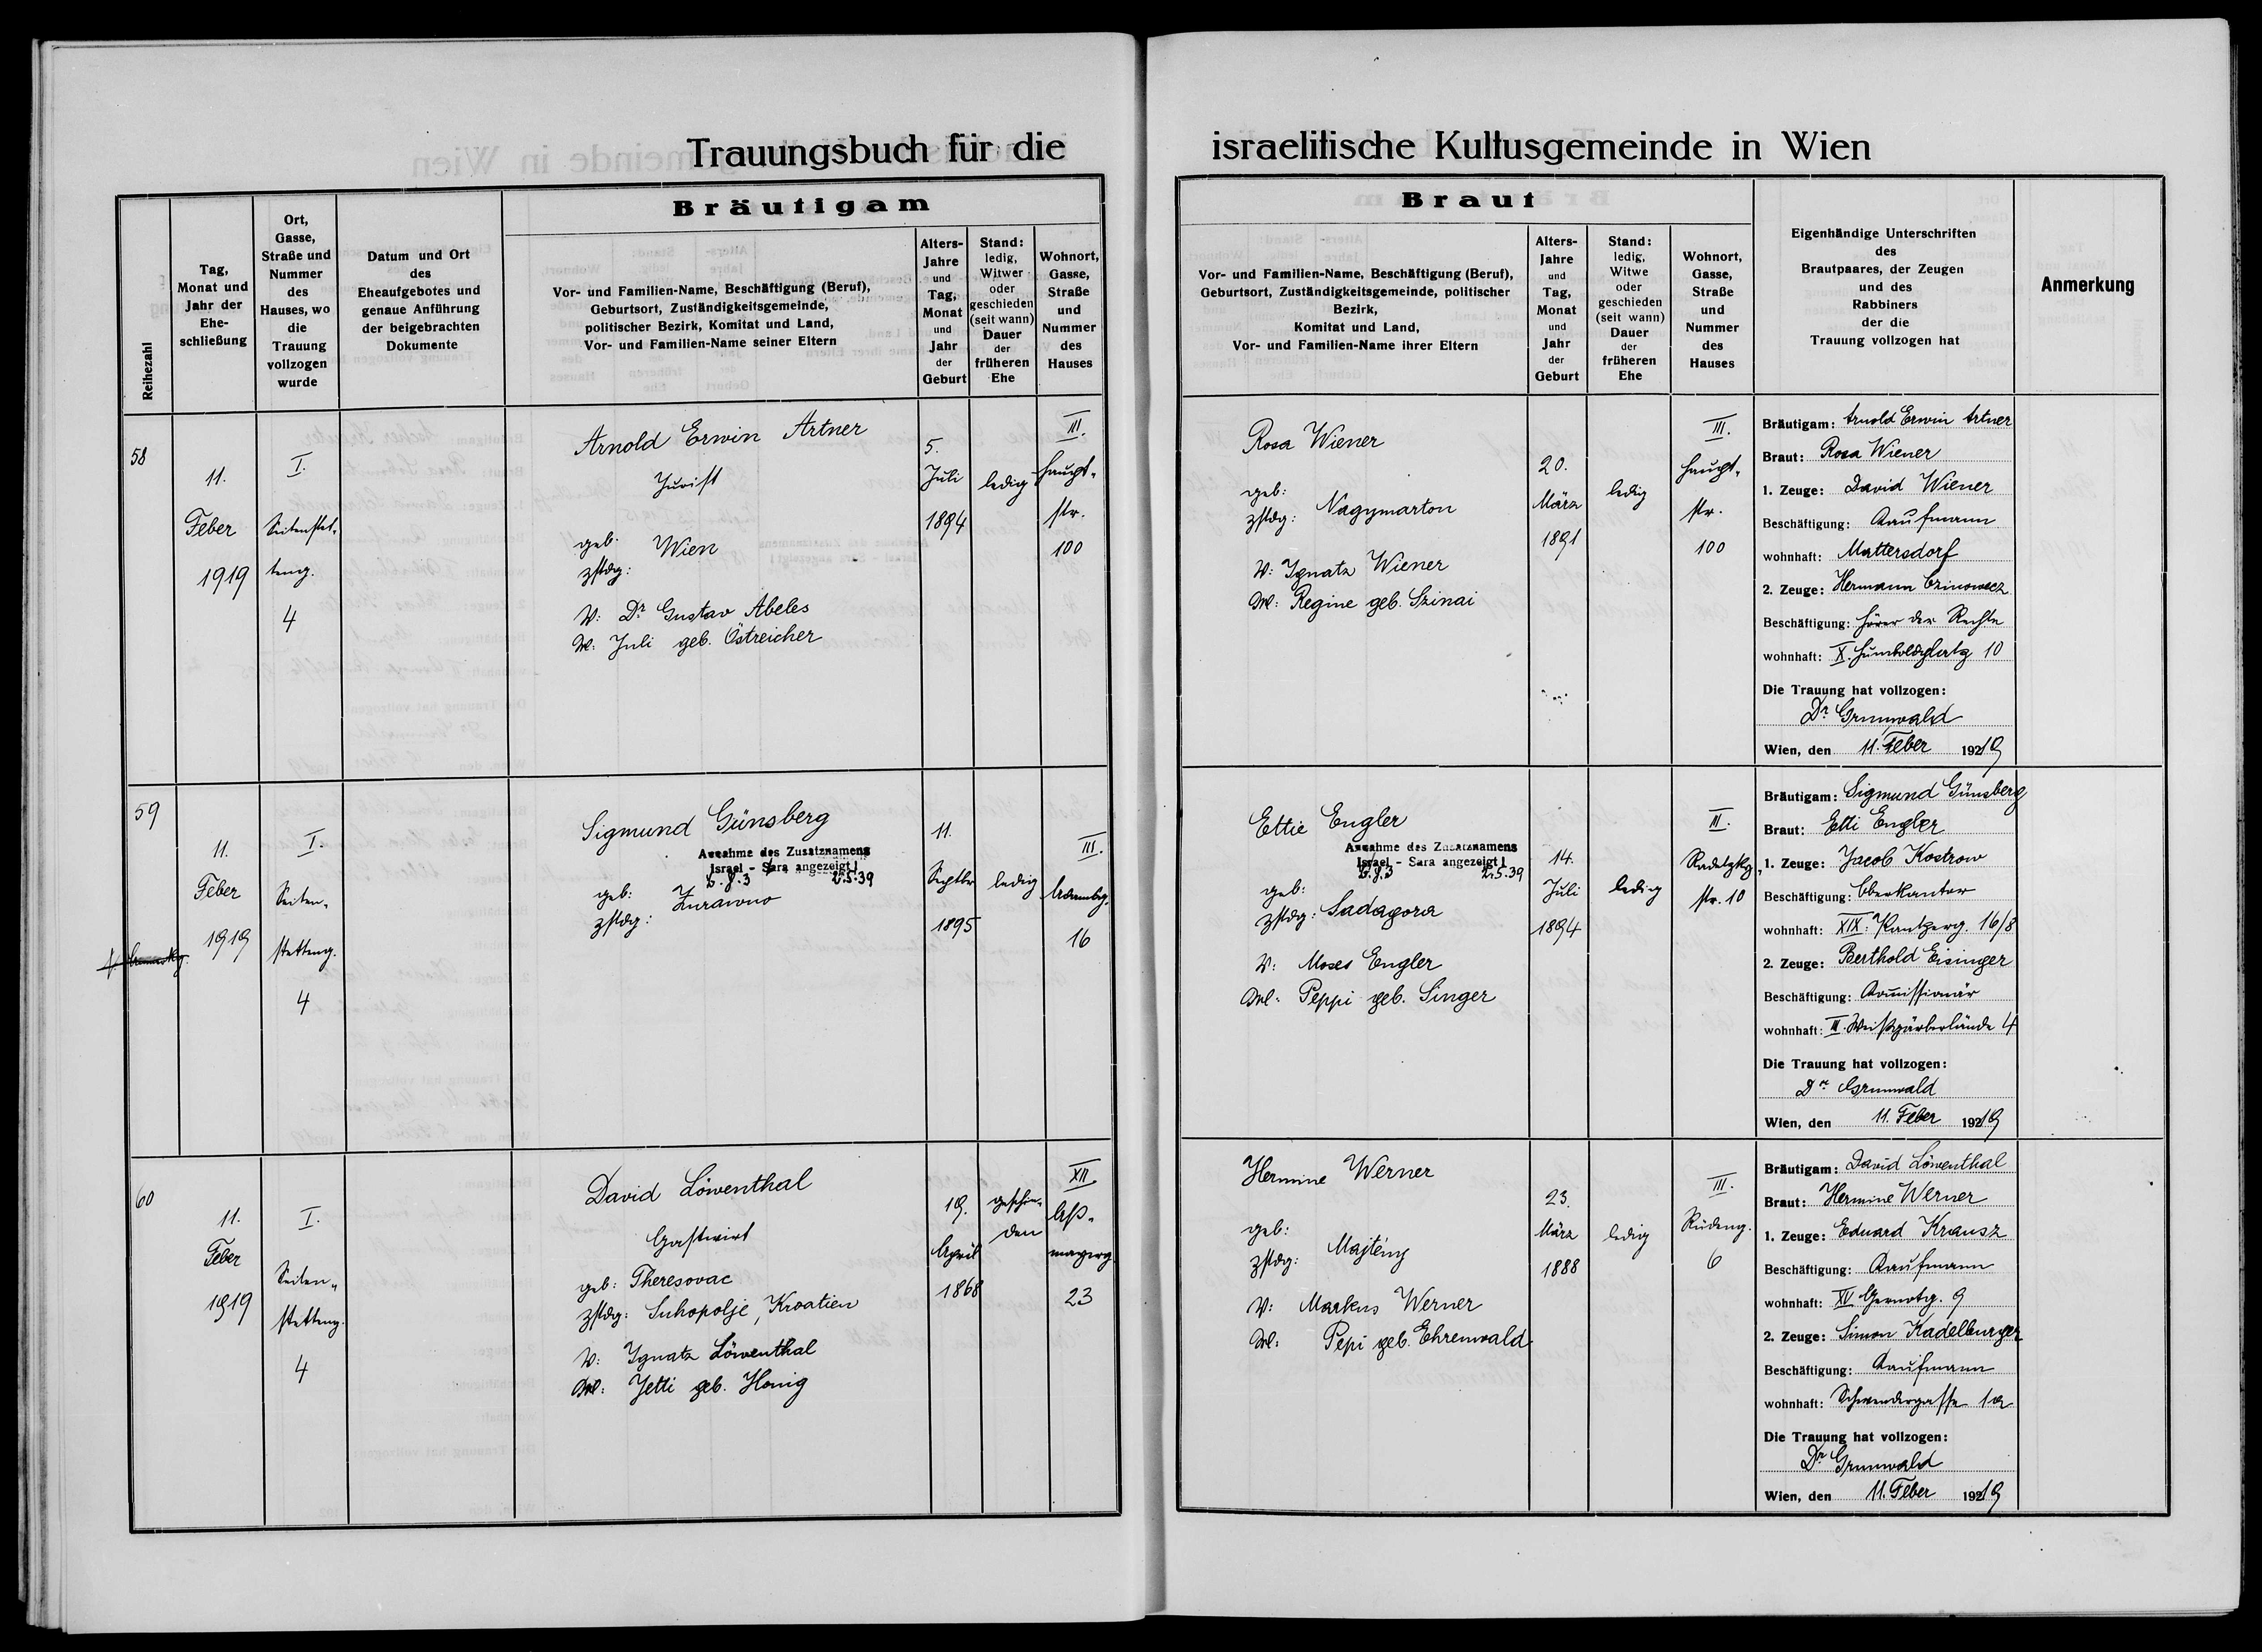 Trauungsbuch für die israelitische Kultusgemeinde in Wien
Reihezahl
Tag,
Monat und
Jahr der
Ehe-
schließung
Ort,
Gasse,
Straße und
Nummer
des
Hauses, wo
die
Trauung
vollzogen
wurde
Datum und Ort
des
Eheaufgebotes und
genaue Anführung
der beigebrachten
Dokumente
Bräutigam
Vor- und Familien-Name, Beschäftigung (Beruf),
Geburtsort, Zuständigkeitsgemeinde,
politischer Bezirk, Komitat und Land,
Vor- und Familien-Name seiner Eltern
Alters-
Jahre
und
Tag,
Monat
und
Jahr
der
Geburt
Stand:
ledig,
Witwer
oder
geschieden
(seit wann)
Dauer
der
früheren
Ehe
Wohnort,
Gasse,
Straße
und
Nummer
des
Hauses
Braut
Vor- und Familien-Name, Beschäftigung (Beruf),
Geburtsort, Zuständigkeitsgemeinde, politischer
Bezirk,
Komitat und Land,
Vor- und Familien-Name ihrer Eltern
Alters-
Jahre
und
Tag,
Monat
und
Jahr
der
Geburt
Stand:
ledig,
Witwe
oder
geschieden
(seit wann)
Dauer
der
früheren
Ehe
Wohnort,
Gasse,
Straße
und
Nummer
des
Hauses
Eigenhändige Unterschriften
des
Brautpaares, der Zeugen
und des
Rabbiners
der die
Trauung vollzogen hat
Anmerkung
58
11.
Feber
1919
I.
Seitenstet-
teng.
4
Arnold Erwin Artner
Jurist
geb:
zstdg: Wien
V: Dr Gustav Abeles
M: Juli geb. Östreicher
5.
Juli
1894
ledig
III.
Haupt-
str.
100
Rosa Wiener
geb:
zstdg: Nagymarton
V: Ignatz Wiener
M: Regine geb. Szinai
20.
März
1891
ledig
III.
Haupt-
str.
100
Bräutigam: Arnold Erwin Artner
Braut: Rosa Wiener
1. Zeuge: David Wiener
Beschäftigung: Kaufmann
wohnhaft: Mattersdorf
2. Zeuge: Hermann
Beschäftigung: Hörer der Rechte
wohnhaft: X. Humboldplatz 10
Die Trauung hat vollzogen:
Dr Grunwald
Wien, den 11. Feber 1919
59
11.
Feber
1919
I.
Seiten-
stetteng.
4
Sigmund Günsberg
Annahme des Zusatznamens
Israel - Sara angezeigt!
2.5.39
geb:
zstdg: Zurawno
11.
Septbr
1895
ledig
III.
Adambg.
16
Ettie Engler
Annahme des Zusatznamens
Israel - Sara angezeigt!
2.5.39
geb:
zstdg: Sadagora
V: Moses Engler
M: Peppi geb. Singer
14.
Juli
1894
ledig
III.
Radetzky-
str. 10
Bräutigam: Sigmund Günsberg
Braut: Etti Engler
1. Zeuge: Jacob Kostrow
Beschäftigung: Oberkantor
wohnhaft: XIX. 16/8
2. Zeuge: Berthold Eisinger
Beschäftigung: Komissionär
wohnhaft: III. Weißgärberlände 4
Die Trauung hat vollzogen:
Dr Grunwald
Wien, den 11. Feber 1919
60
11.
Feber
1919
I.
Seiten-
stetteng.
4
David Löwenthal
Gastwirt
geb: Theresovac
zstdg: Suhopolje, Kroatien
V: Ignatz Löwenthal
M: Jetti geb. Honig
19.
April
1868
geschie-
den
XII.
Aß-
mayerg.
23
Hermine Werner
geb:
zstdg: Majtény
V: Markus Werner
M: Pepi geb. Ehrenwald
23.
März
1888
ledig
III.
Rüdeng.
6
Bräutigam: David Löwenthal
Braut: Hermine Werner
1. Zeuge: Eduard Krausz
Beschäftigung: Kaufmann
wohnhaft: XV Gernotg. 9
2. Zeuge: Simon Kadelburger
Beschäftigung: Kaufmann
wohnhaft: Schwendergasse 1a
Die Trauung hat vollzogen:
Dr Grunwald
Wien, den 11. Feber 1919